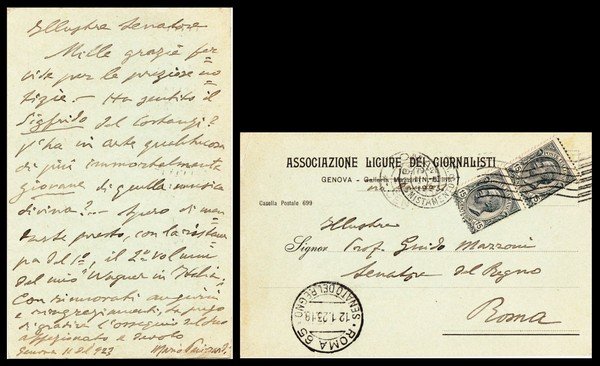 Illustre Senatore
Mille grazie fer
vide per le preziose no
tizie – Ha sentito il
Sigfrido del Costanzi?
V'ha in arte qualchecosa
di più immortalmente
giovane di quella musica
divina? – Spero di man
darle presto, con la ristam
pa del 1º, il 2º volume
del mio "Wagner in Italia".
Con rinnovati auguri
e ringraziamenti, La prego
di gradire l'ossequio del suo
affezionato e devoto
Genova 11 del 923 Mario
ASSOCIAZIONE LIGURE DEI GIORNALISTI
GENOVA - Galleria Mazzini
Casella Postale 699
Illustre
Signor Prof. Guido Mazzoni
Senatore del Regno
Roma
ROMA 65
SENATO DEL REGNO
12.1.23.18